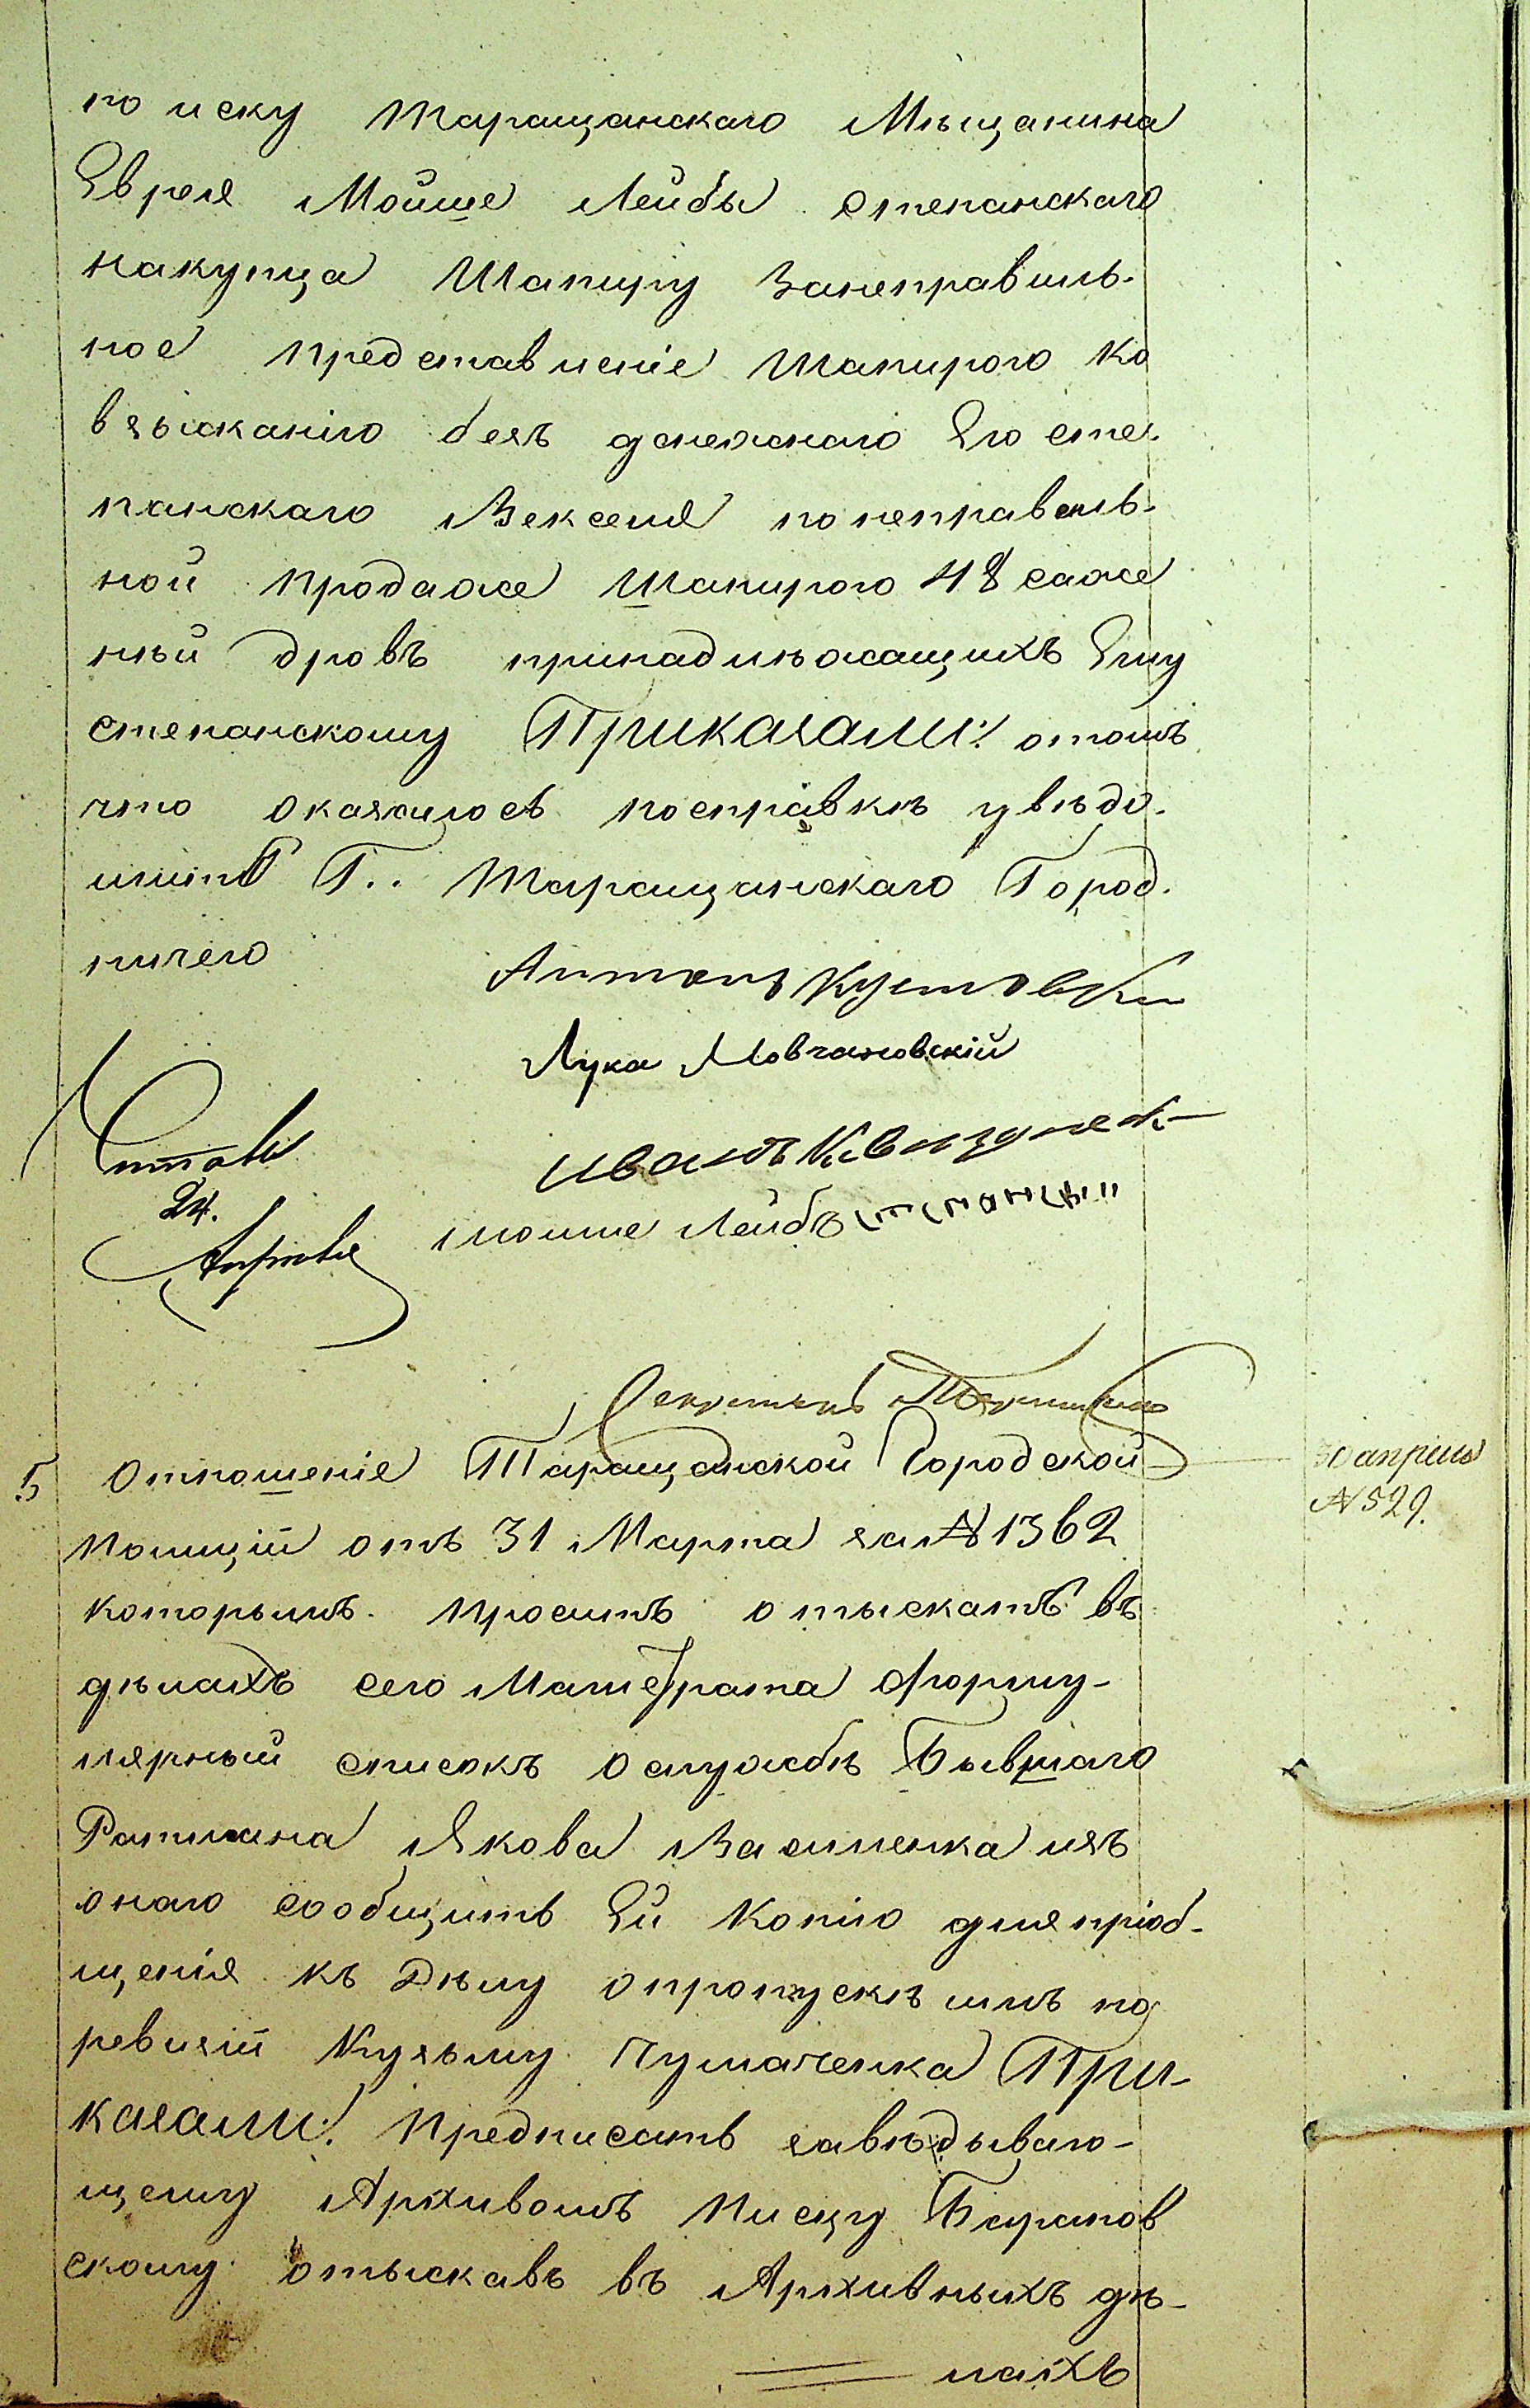 по иску Таращанскаго Мѣщанина
Еврея Мойше Лейбы Степанскаго
накупца Шапиру Занеправиль-
ное представленіе Шапирого ко
взысканію безъ денежнаго Его Сте-
панскаго Векселя понеправель-
ной продаже Шапирого 48 саже
нъй дровъ принадлѣжащихъ Ему
Степанскому Приказали: отомъ
что оказалось посправкѣ увѣдо-
мить Г.. Таращанскаго Город-
ничего
Антонъ Кустовскі
Лука Мовчановскій
Читалъ
24.
Апрѣля
Иванъ
мошше Лейбъ
Секретарь
5 Отношеніе Таращанской Городской
30 апрѣля
№ 529.
Полиціи отъ 31 Марта за № 1362
которымъ проситъ отыскать въ
дѣлахъ сего Магистрата форму-
лярный списокъ ослужбѣ Бывшаго
Ратмана Якова Василенка изъ
онаго сообщить Ей Копію для пріоб-
щенія къ Дѣлу опропускѣ имъ по
ревизіи Кузьму Чумаченка При-
казали: Предписать завѣдываю-
щему Архивомъ Писцу Баранов
скому отыскавъ въ Архивныхъ дѣ-
лахъ